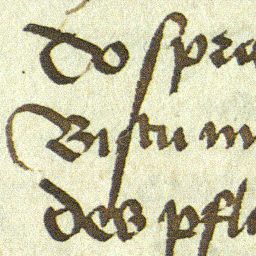 Do spra
Bistu m
des pfl